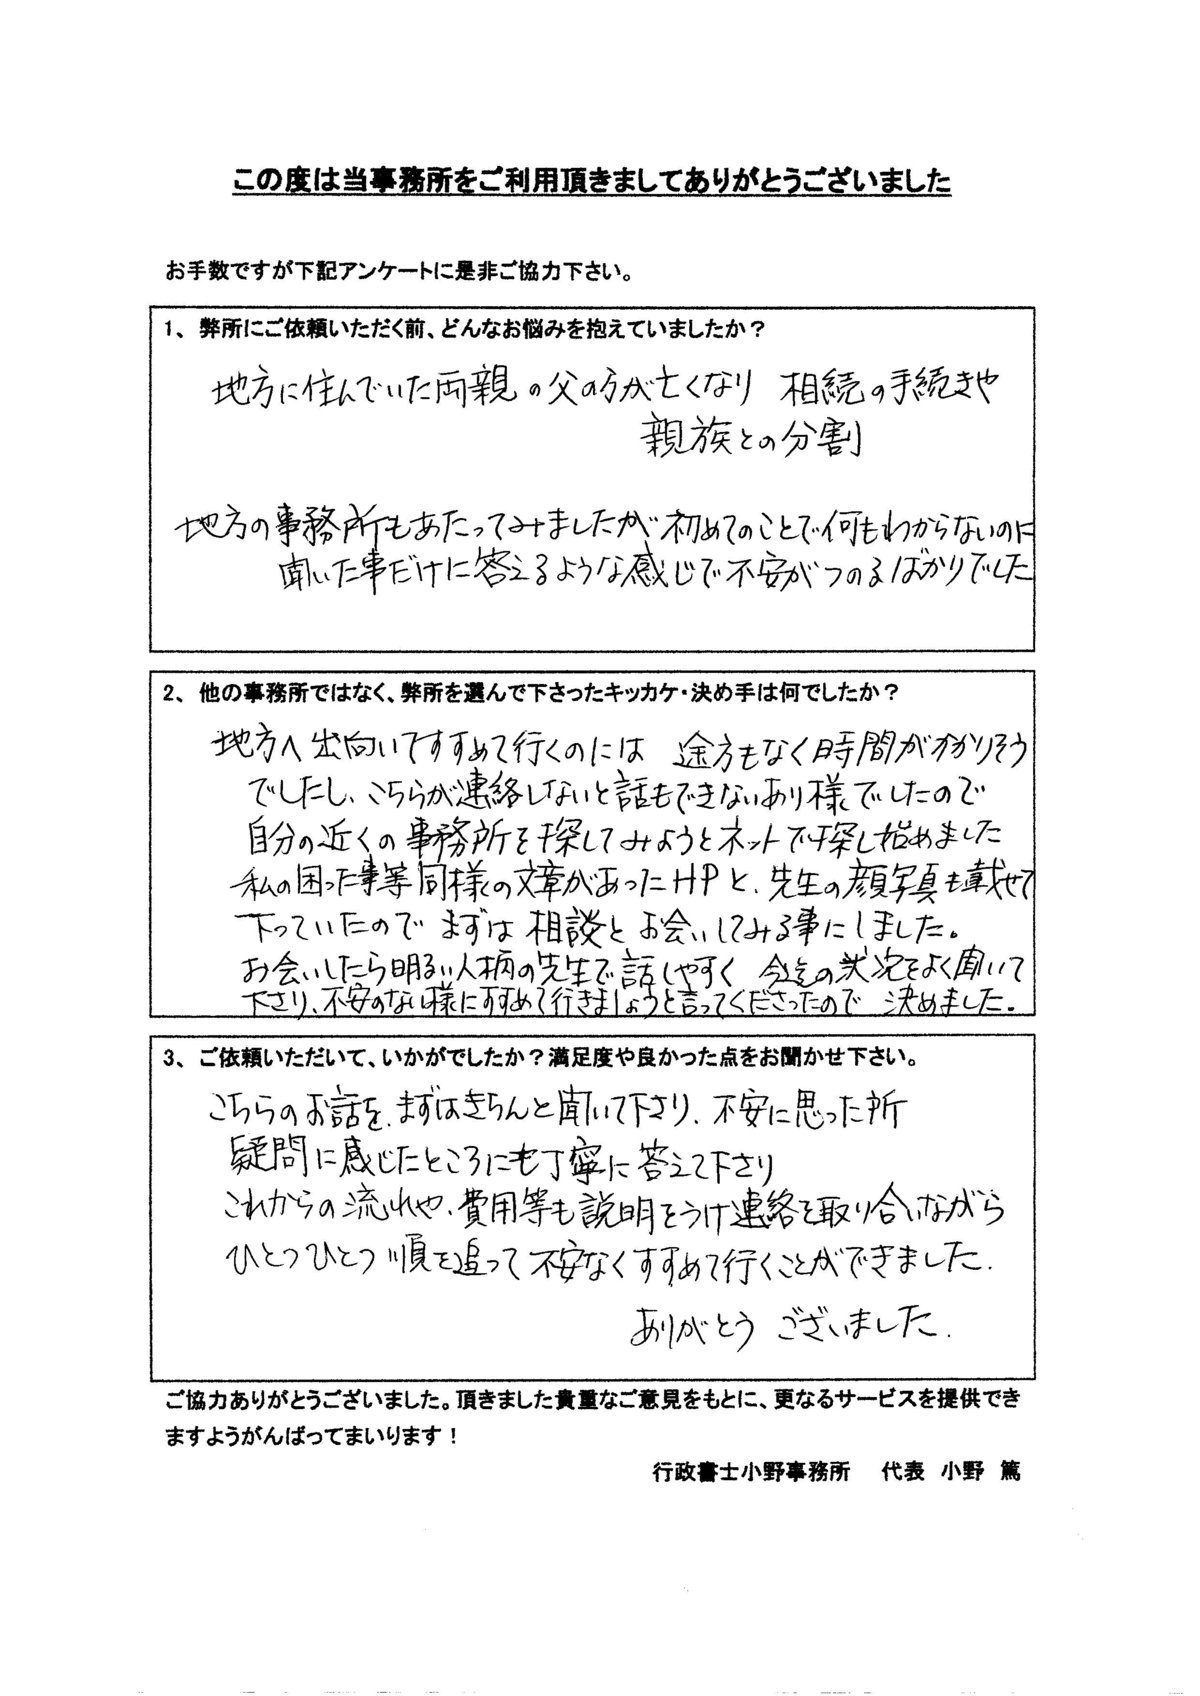 この度は当事務所をご利用頂きましてありがとうございました
お手数ですが下記アンケートに是非ご協力下さい。
1、弊所にご依頼いただく前、どんなお悩みを抱えていましたか?
地方に住んでいた両親の父の方が亡くなり 相続の手続きや
親族との分割
地方の事務所もあたってみましたが初めてのことで何もわからないのに
聞いた事だけに答えるような感じで不安がつのるばかりでした
2、他の事務所ではなく、弊所を選んで下さったキッカケ・決め手は何でしたか?
地方へ出向いてすすめて行くのには 途方もなく時間がかかりそう
でしたし、こちらが連絡しないと話もできないあり様でしたので
自分の近くの事務所を探してみようとネットで探し始めました
私の困った事等同様の文章があったHPと、先生の顔写真も載せて
下っていたので まずは相談とお会いしてみる事にしました。
お会いしたら明るい人柄の先生で話しやすく 今迄の状況をよく聞いて
下さり、不安のない様にすすめて行きましょうと言ってくださったので 決めました。
3、ご依頼いただいて、いかがでしたか?満足度や良かった点をお聞かせ下さい。
こちらのお話を、まずはきちんと聞いて下さり、不安に思った所
疑問に感じたところにも丁寧に答えて下さり
これからの流れや、費用等も説明をうけ連絡を取り合いながら
ひとつひとつ順を追って不安なくすすめて行くことができました.
ありがとう ございました.
ご協力ありがとうございました。頂きました貴重なご意見をもとに、更なるサービスを提供でき
ますようがんばってまいります!
行政書士小野事務所 代表 小野 篤